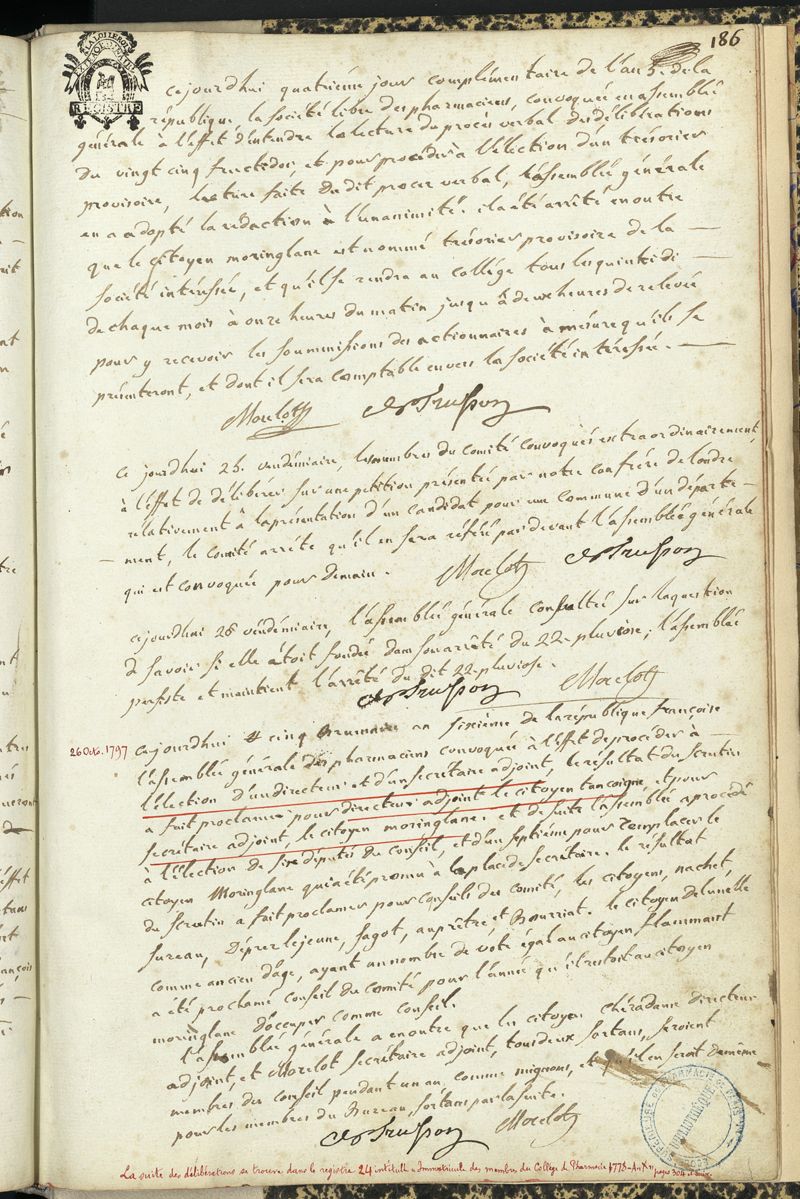 186
A LA LOI LE ROI
EXTRAORDINAIRE
REGISTRE
cejourdhui quatriéme jour complémentaire de l'an 5e de la
république la société libre des pharmaciens, convoquée en assemblée
générale à l'effet d'entendre la lecture du procès verbal des délibérations
du vingt cinq fructidor, et pour procéder à l'élection d'un trésorier
provisoire, lecture faite du dit procès verbal, l'assemblée générale
en a adopté la rédaction à l'unanimité. il a été arrêté en outre
que le citoyen moringlane est nommé trésorier provisoire de la
société intéressée, et qu'il se rendra au collége tous les quintidi
de chaque mois à onze heures du matin jusqu'à deux heures de relevée
pour y recevoir les soumissions des actionnaires à mesure qu'ils se
présenteront, et dont il sera comptable envers la société intéressée.
Morelot Trusson
ce jourdhui 25. vendémiaire, les membres du comité convoqués extraordinairement,
à l'effet de délibérer sur une pétition présentée par notre confrère delondre
relativement à la présentation d'un candidat pour une commune d'un départe-
ment, le comité arrête qu'il en sera référé pardevant l'assemblée générale
qui est convoquée pour demain.
Morelot Trusson
cejourdhui 26 vendémiaire, l'assemblée générale consultée sur la question
de savoir si elle étoit fondée dans son arrêté du 22 pluviose, l'assemblée
persiste et maintient l'arrêté du dit 22 pluviose.
Trusson Morelot
26 Octo. 1797
cejourdhui cinq Brumaire an sixième de la république françoise
l'assemblée générale des pharmaciens convoquée à l'effet de procéder à
l'élection d'un directeur et d'un secrétaire adjoint, le résultat du scrutin
a fait proclamer pour directeur adjoint le citoyen tancoigne, et pour
secrétaire adjoint, le citoyen moringlane. et de suite l'assemblée a procédé
à l'élection de six députés du conseil, et d'un septième pour remplacer le
citoyen Moringlane qui a été promu à la place de secrétaire. le résultat
du scrutin a fait proclamer pour conseils du comité, les citoyens, nachet,
sureau, Déprez lejeune, sagot, auprêtre et Bourriat. le citoyen Delunelle
comme ancien d'âge, ayant un nombre de voix égal au citoyen flammant
a été proclamé conseil du comité pour l'année qu'il restoit au citoyen
moringlane d'occuper comme conseil.
l'assemblée générale a en outre que les citoyen chéradame directeur
adjoint, et Morelot secrétaire adjoint, tous deux sortans, seroient
membres du conseil pendant un an, comme mignons, et qu'il en seroit de même
pour les membres du Bureau, sortans par la suite.
Trusson Morelot
La suite des délibérations se trouve dans le registre 24 intitulé « Immatricule des membres du Collège de Pharmacie 1778-An X », pages 304 et suiv.